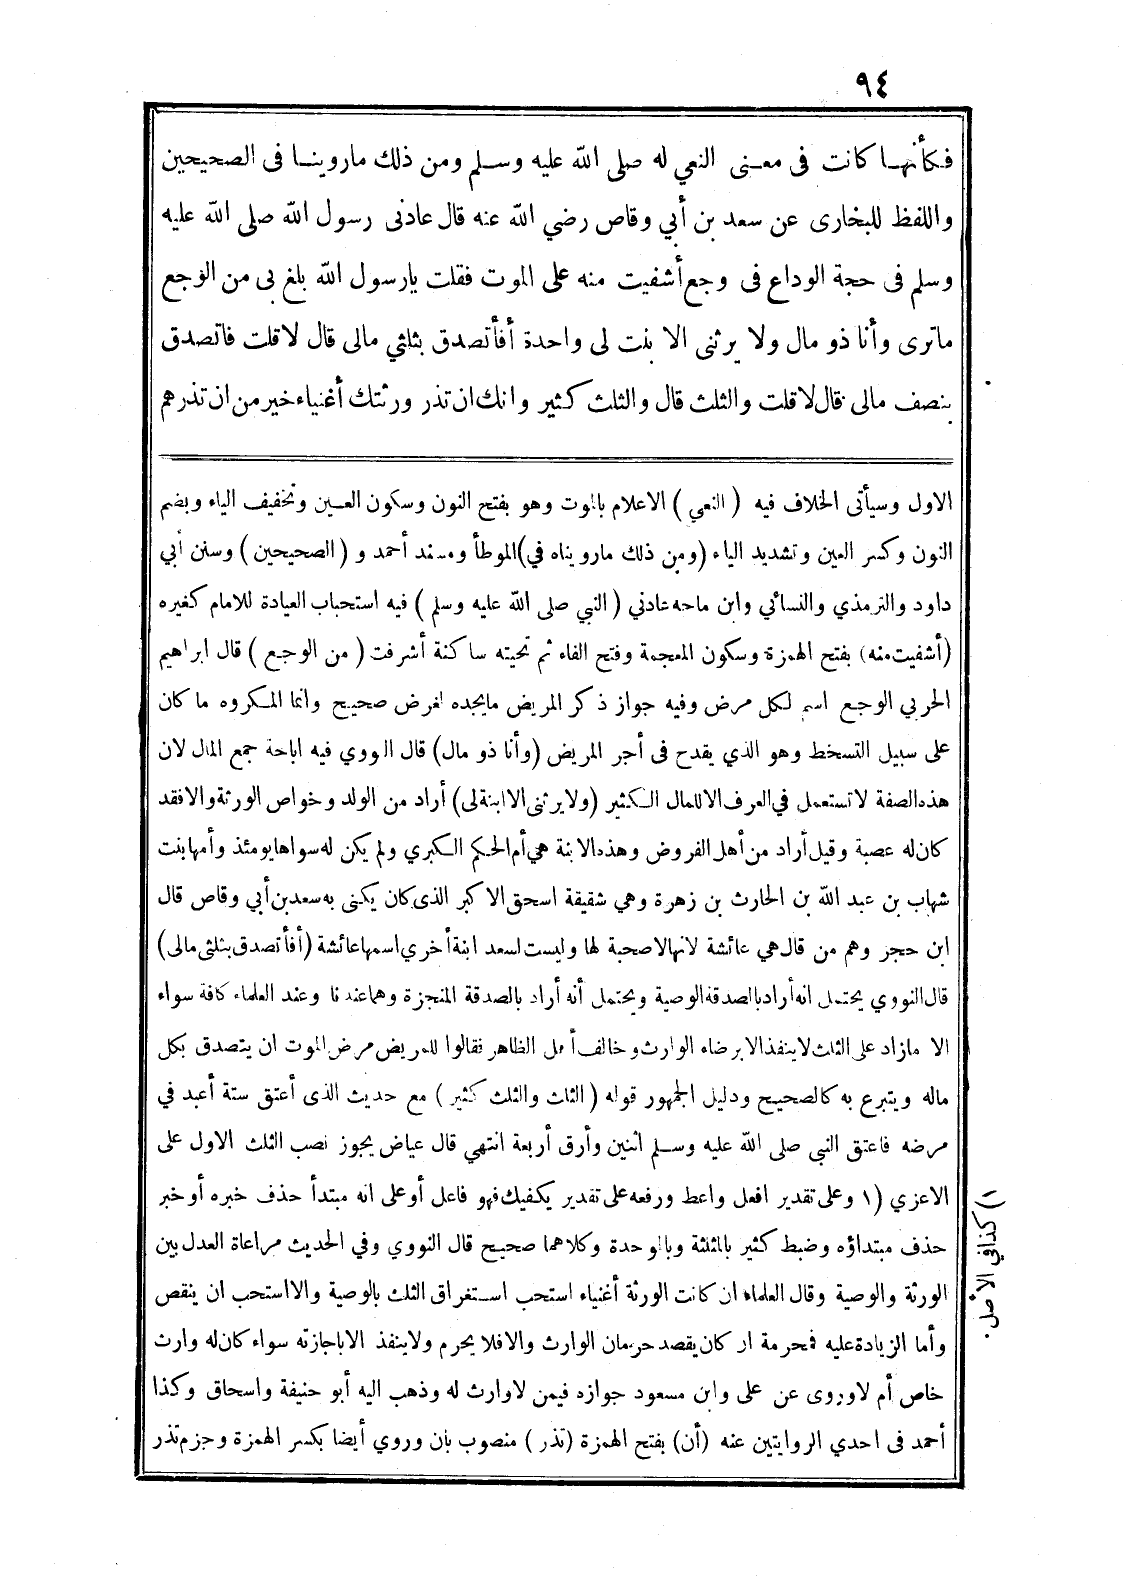 ٩٤
فكأنها كانت فى معنى النعي له صلى الله عليه وسلم ومن ذلك ماروينا فى الصحيحين
واللفظ للبخارى عن سعد بن أبي وقاص رضي الله عنه قال عادنى رسول الله صلى الله عليه
وسلم فى حجة الوداع فى وجع أشفيت منه على الموت فقلت يارسول الله بلغ بى من الوجع
ماترى وأنا ذو مال ولا يرثنى الا بنت لى واحدة أفأتصدق بثلثي مالى قال لا قلت فاتصدق
بنصف مالى قال لا قلت والثلث قال والثلث كثير وانك ان تذر ورثتك أغنياء خير من ان تذرهم
الاول وسيأتى الخلاف فيه ( النعي ) الاعلام بالموت وهو بفتح النون وسكون العين وتخفيف الياء وبضم
النون وكسر العين وتشديد الياء (ومن ذلك مارويناه في) الموطأ ومسند أحمد و ( الصحيحين ) وسنن أبي
داود والترمذي والنسائي وابن ماجه عادني ( النبي صلى الله عليه وسلم ) فيه استحباب العيادة للامام كغيره
(أشفيت منه) بفتح الهمزة وسكون المعجمة وفتح الفاء ثم تحيته ساكنة أشرفت ( من الوجع ) قال ابراهيم
الحربي الوجع اسم لكل مرض وفيه جواز ذكر المريض مايجده لغرض صحيح وانما المكروه ماكان
على سبيل التسخط وهو الذي يقدح فى أجر المريض (وأنا ذو مال) قال النووي فيه اباحة جمع المال لان
هذه الصفة لاتستعمل في العرف الا للمال الكثير (ولا يرثنى الا ابنة لى) أراد من الولد وخواص الورثة والا فقد
كان له عصبة وقيل أراد من أهل الفروض وهذه الابنة هي أم الحكم الكبري ولم يكن له سواها يومئذ وأمها بنت
شهاب بن عبد الله بن الحارث بن زهرة وهي شقيقة اسحق الاكبر الذى كان يكنى به سعد بن أبي وقاص قال
ابن حجر وهم من قال هي عائشة لانها لاصحبة لها وليست لسعد ابنة أخري اسمها عائشة (أفأتصدق بثلثى مالى)
قال النووي يحتمل انه أراد بالصدقة الوصية ويحتمل أنه أراد بالصدقة المنجزة وهما عندنا وعند العلماء كافة سواء
الا مازاد على الثلث لاينفذ الا برضاء الوارث وخالف أهل الظاهر فقالوا للمريض مرض الموت ان يتصدق بكل
ماله ويتبرع به كالصحيح ودليل الجمهور قوله ( الثلث والثلث كثير ) مع حديث الذى أعتق ستة أعبد في
مرضه فاعتق النبي صلى الله عليه وسلم اثنين وأرق أربعة انتهي قال عياض يجوز نصب الثلث الاول على
الاعزي (١ وعلى تقدير افعل واعط ورفعه على تقدير يكفيك فهو فاعل أو على انه مبتدأ حذف خبره أو خبر
حذف مبتداؤه وضبط كثير بالمثلثة وبالموحدة وكلاهما صحيح قال النووي وفي الحديث مراعاة العدل بين
الورثة والوصية وقال العلماء ان كانت الورثة أغنياء استحب استغراق الثلث بالوصية والا استحب ان ينقص
وأما الزيادة عليه فمحرمة ان كان يقصد حرمان الوارث والا فلا يحرم ولا ينفذ الا باجازته سواء كان له وارث
خاص أم لا وروى عن على وابن مسعود جوازه فيمن لاوارث له وذهب اليه أبو حنيفة واسحاق وكذا
أحمد فى احدي الروايتين عنه (أن) بفتح الهمزة (تذر ) منصوب بان وروي أيضا بكسر الهمزة وجزم تذر
١) كذا في الاصل.